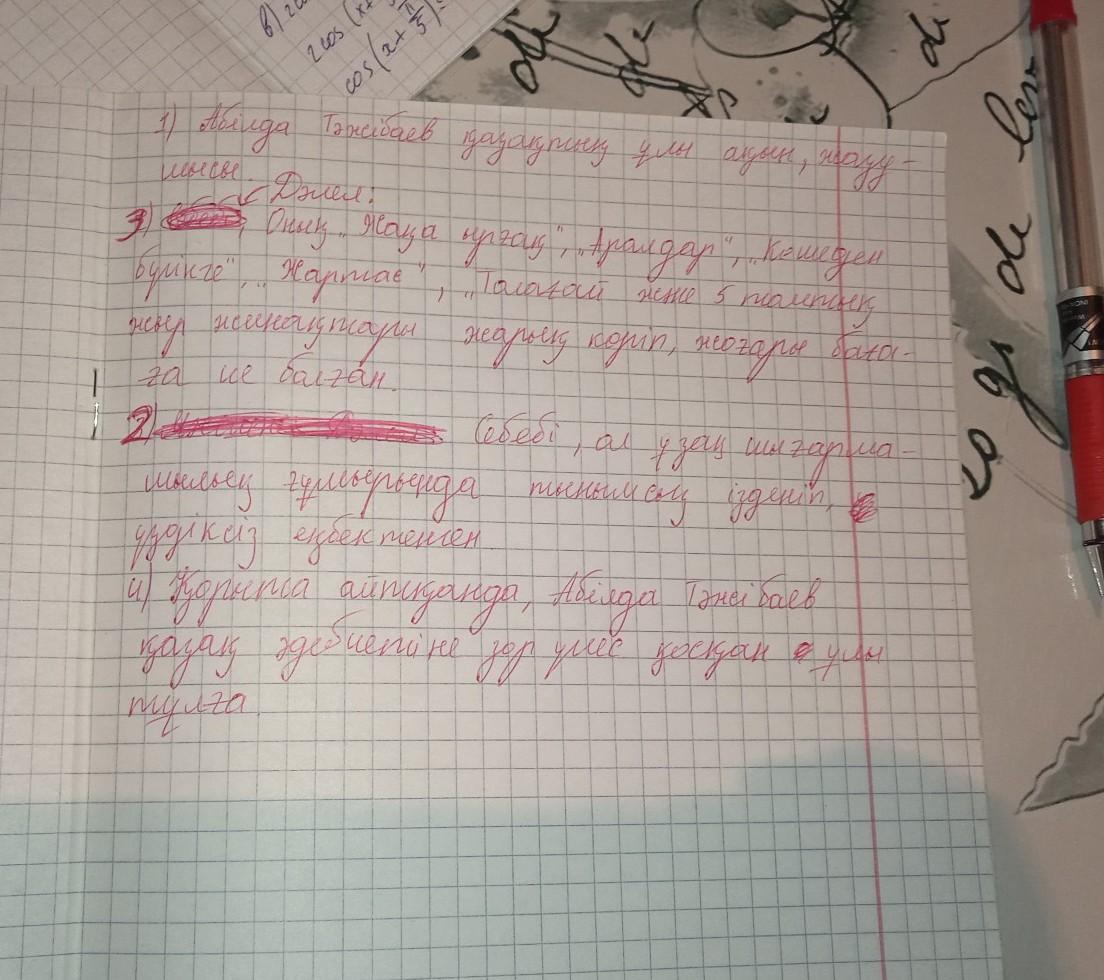 в)
2cos(x+
cos(x+π/5)
1) Абілда Тәжібаев қазақтың ұлы ақын, жазу-
шысы.
Дәлел:
3) Оның „Жаңа ырғақ", „Аралдар", „Кешеден
бүгінге", „Жартас", „Толағай және 5 томтық
жыр жинақтары жарық көріп, жоғары баға-
ға ие болған.
2) Себебі, ол ұзақ шығарма-
шылық ғұмырында тынымсыз ізденіп,
үздіксіз еңбектенген
4) Қорыта айтқанда, Абілда Тәжібаев
қазақ әдебиетіне зор үлес қосқан ұлы
тұлға.
de
de
de
de